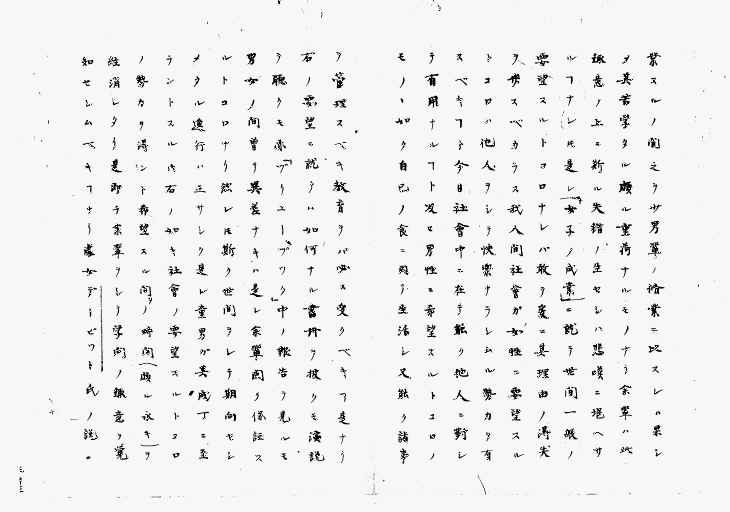 業スルノ間之ヲ少男輩ノ脩業ニ比スレハ果シ
メ其苦学タル頗ル重荷ナルモノナラ余輩ハ此
趣意ノ上ニ斯ル失錯ノ生セシハ悲嘆ニ堪ヘサ
ルフナレ𪜈是レ「女子ノ成業」ニ就テ世間一般ノ
要望スルトコロナレバ敢テ爰ニ其理由ノ得失
ヲ スベカラス我人間社會ガ女性ニ要望スル
トコロハ他人ヲシテ快楽ナラシムル勢力ヲ有
スベキフト今日社會中ニ在テ能ク他人ニ對シ
テ有用ナルフト及ヒ男性ニ希望スルトコロノ
モノヽ如ク自己ノ食ニ因テ生活シ又能ク諸事
ヲ管理スベキ教育ヲバ必ス受クベキフ是ナリ
右ノ要望ニ就テハ如何ナル書冊ヲ披クモ演説
ヲ聴クモ亦「ブリユーブック」中ノ報告ヲ見ルモ
男女ノ間曽テ異差ナキハ是レ余輩固ク保証ス
ルトコロナリ然レ𪜈斯ク世間ヲシテ期向セシ
メタル進行ハ正サシク是レ童男ガ其成丁ニ至
ラントスル𪜈右ノ如キ社會ノ要望スルトコロ
ノ勢力ヲ得ント希望スル間ノ時間（頗ル永キ）ヲ
経消シタリ是即チ余輩ヲシテ学問ノ趣意ヲ覚
知セシムベキフナリ處女デービット氏ノ説ニ